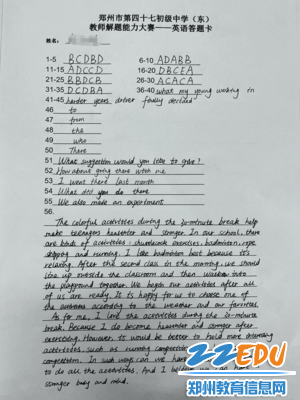 郑州市第四十七初级中学（东）
教师解题能力大赛——英语答题卡
姓名：
1-5 BCDBD 6-10 ADABB
11-15 ADCCD 16-20 DBCEA
21-25 BBDCB 26-30 ACACA
31-35 DCDBA 36-40 what my young working in
41-45 harder years driver finally decided
46 to
47 from
48 the
49 who
50 There
51 What suggestion would you like to give?
52 How about going there with me
53 I went there last month
54 What did you do there
55 We also made an experiment
56.
The colorful activities during the 30-minute break help
make teenagers healthier and stronger. In our school, there
are kinds of activities: shuttlecock exercises, badminton, rope
skipping and running. I like badminton best because it's
relaxing. After the second class in the morning, we should
line up outside the classroom and then walk into
the playground together. We begin our activities after all
of us are ready. It is happy for us to choose one of
the activities according to the weather and our favorites.
As for me, I love the activities during the 30-minute
break. Because I do become healthier and stronger after
exercising. However, it would be better to hold more interesting
activities, such as running competition
competition. In such ways can we have
to do all the activities. And I believe we can have
stronger body and mind.
22EDU
郑州教育信息网